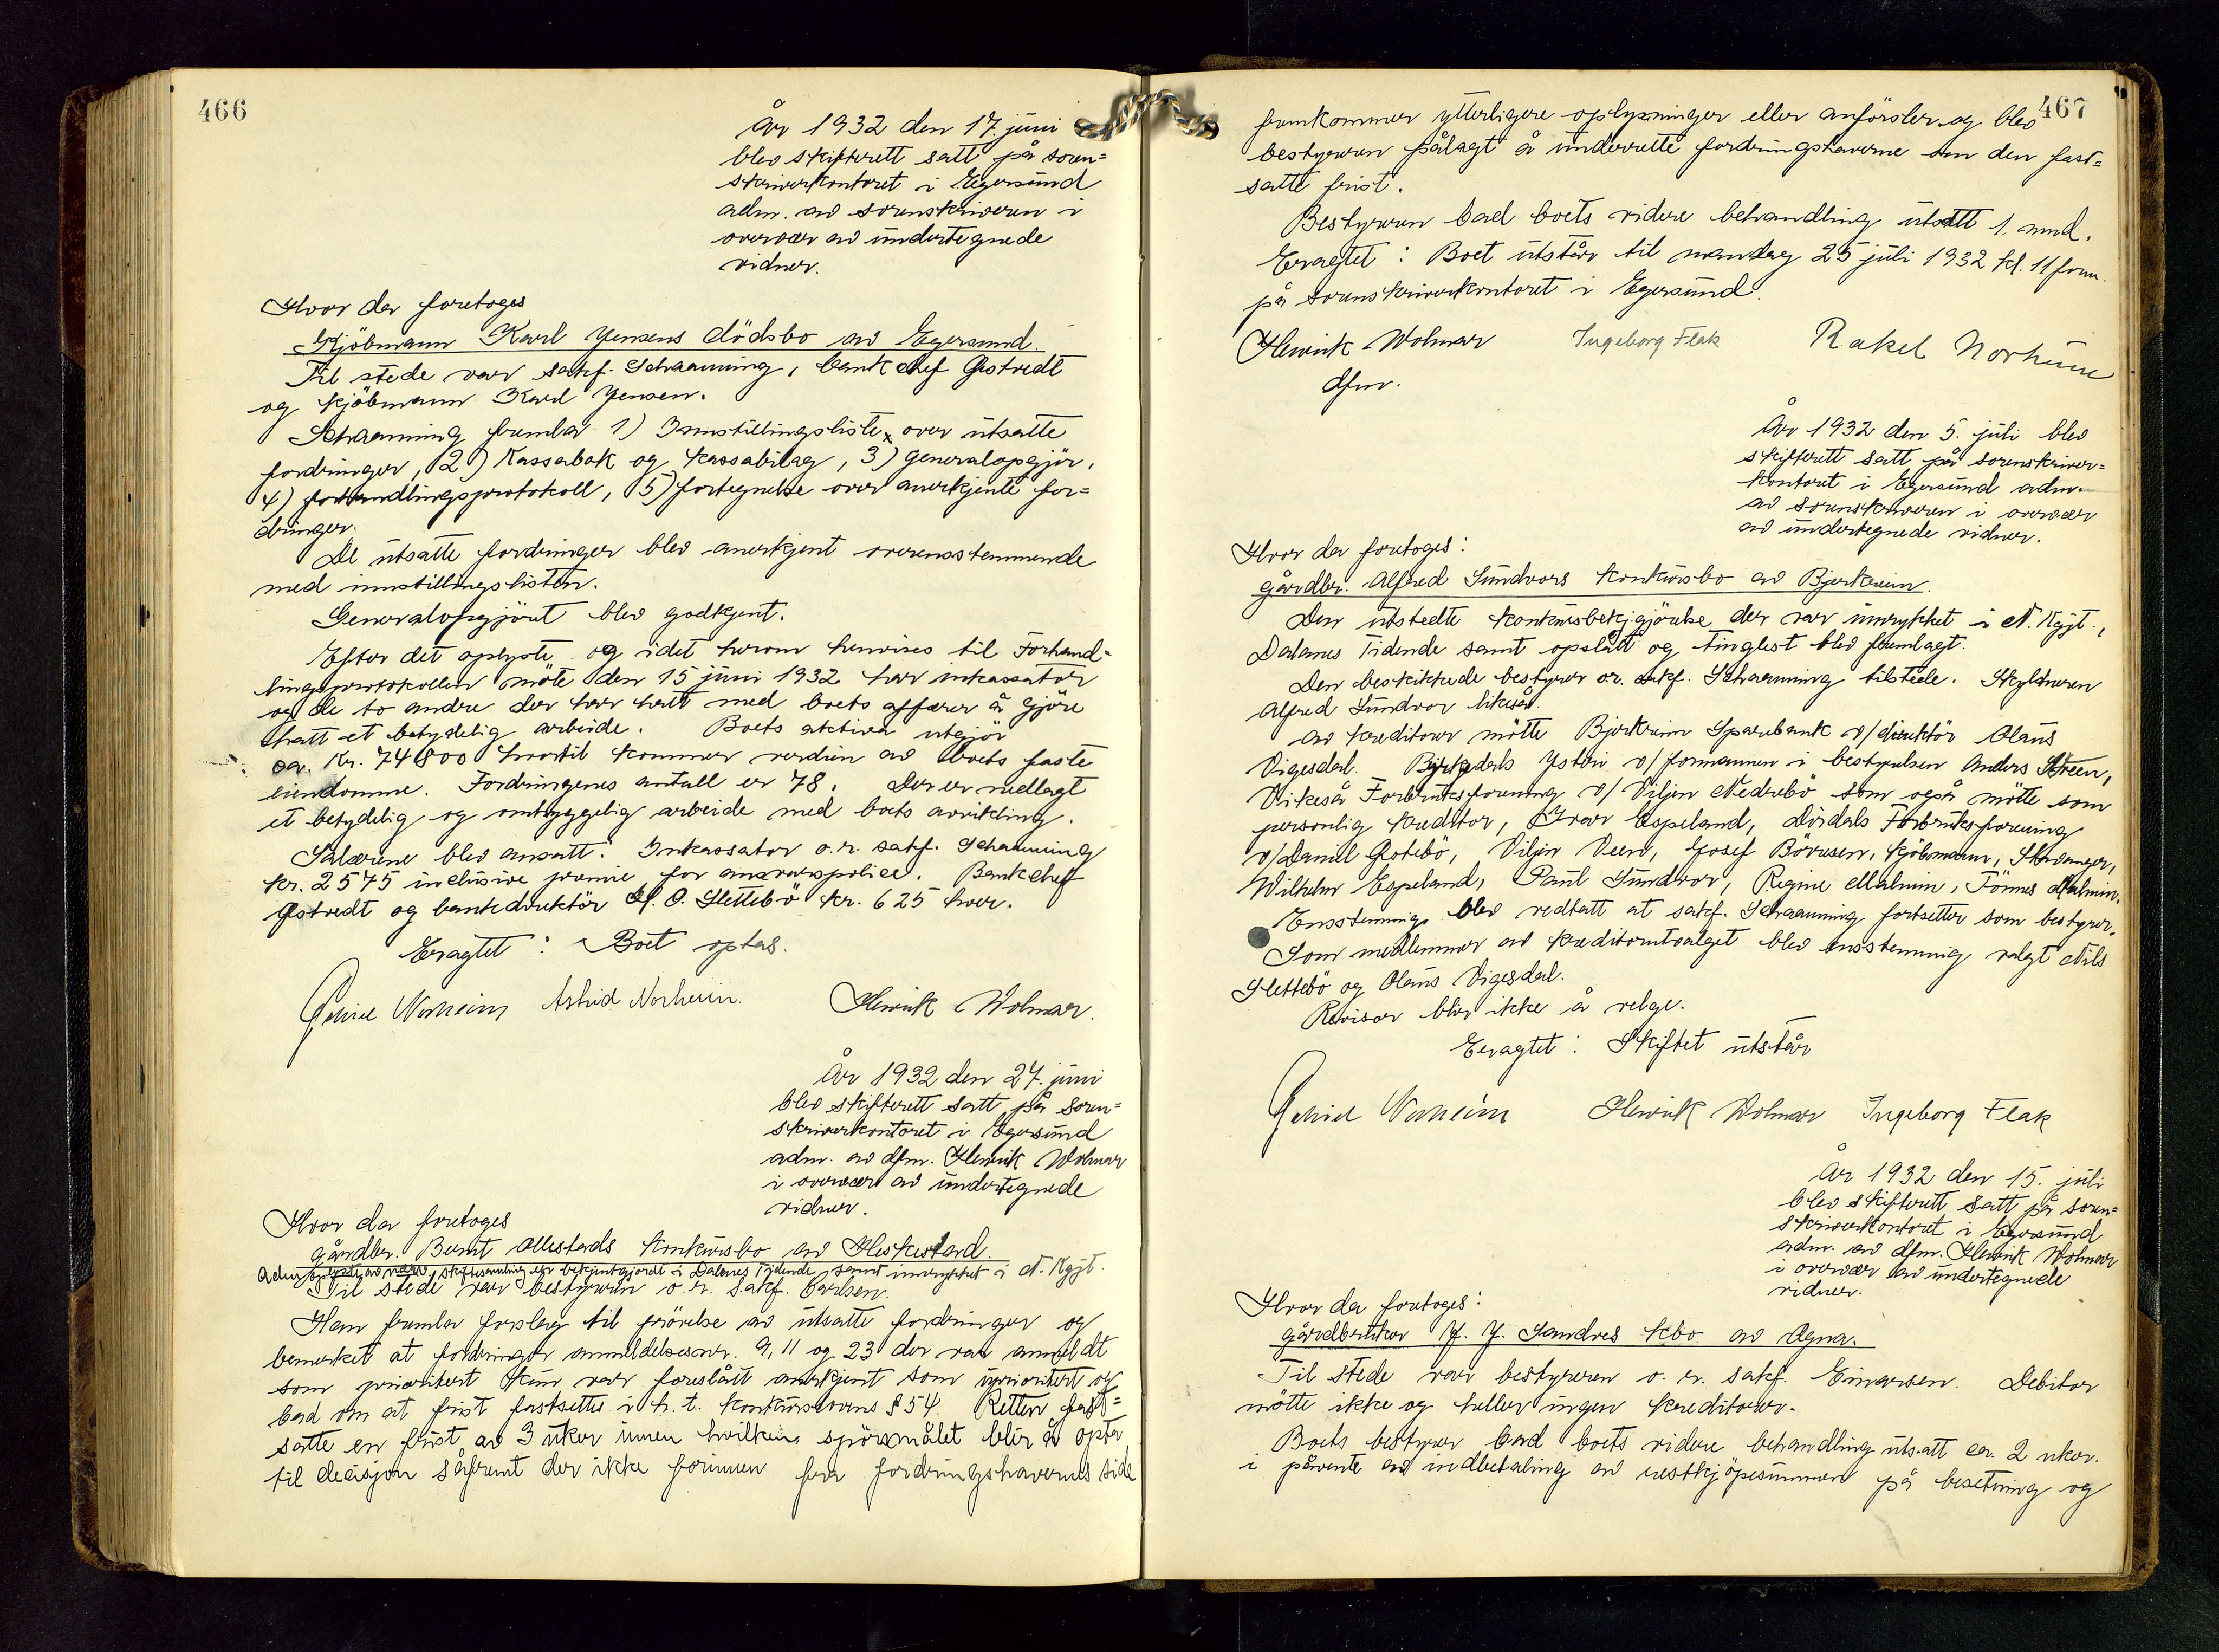 466
År 1932 den 17. juni
blev skifterett satt på soren=
skriverkontoret i Egersund
adm. av sorenskriveren i
overvær av undertegnede
vidner.
Hvor da foretoges
Kjöbmann Karl Jensens dödsbo av Egersund.
Til stede var sakf. Schaanning, bankchef Gystvedt
og kjöbmann Karl Jensen.
Schaanning fremla 1) Innstillingsliste over utsatte
fordringer, 2) Kassabok og kassabilag, 3) generalopgjör,
4) forhandlingsprotokoll, 5) fortegnelse over anerkjente for=
dringer.
De utsatte fordringer blev anerkjent overensstemmende
med innstillingslisten.
Generalopgjöret blev godkjent.
Efter det oplyste og idet herom henvises til Forhand=
lingsprotokollen möte den 15 juni 1932 har inkassator
og de to andre der har hatt med boets affærer å gjöre
hatt et betydelig arbeide. Boets aktiva utgjör
ca. Kr. 74800 hvortil kommer verdien av boets faste
eiendomme. Fordringenes antall er 78. Der er nedlagt
et betydelig og omhyggelig arbeide med boets avvikling.
Salærene blev ansatt: Inkassator o.r. sakf. Schaanning
kr. 2575 inclusive premie for ansvarspolice. Bankchef
Gystvedt og bankdirektör O. Slettebö kr. 625 hver.
Eragtet: Boet optas.
Astrid Norheim. Henrik Wolmar.
År 1932 den 27. juni
blev skifterett satt på soren=
skriverkontoret i Egersund
adm. av dfm. Henrik Wolmar
i overvær av undertegnede
vidner.
Hvor da foretoges
gårdbr. Bernt Ollestads konkursbo av Heskestad.
skiftesamling er bekjentgjordt i Dalanes Tidende, samt innrykket i N. Kgjt.
Til stede var bestyreren o.r. sakf. Carlsen.
Han fremla forslag til prövelse av utsatte fordringer og
bemerket at fordringer anmeldelsesnr. 9, 11 og 23 der var anmeldt
som prioritert kun var foreslått anerkjent som uprioritert og
bad om at frist fastsettes i h.t. konkurslovens § 54. Retten fast=
satte en frist av 3 uker innen hvilken spörsmålet blir å opta
til decisjon såfremt der ikke forinnen fra fordringshavernes side
467
fremkommer ytterligere oplysninger eller anförsler og blev
bestyreren pålagt å underrette fordringshaverne om den fast=
satte frist.
Bestyreren bad boets videre behandling utsatt 1. mnd.
Eragtet: Boet utstår til mandag 25 juli 1932 kl. 11 form.
på sorenskriverkontoret i Egersund.
Henrik Wolmar Ingeborg Flak Rakel Norheim
dfm.
År 1932 den 5. juli blev
skifterett satt på sorenskriver=
kontoret i Egersund adm.
av sorenskriveren i overvær
av undertegnede vidner.
Hvor da foretoges:
gårdbr. Alfred Sundvors konkursbo av Bjerkreim.
Den utstedte konkursbekjgjörelse der var innrykket i N. Kgjt.,
Dalanes Tidende samt opslått og tinglest blev fremlagt.
Den beskikkede bestyrer o.r. sakf. Schaanning tilstede. Skyldneren
Alfred Sundvor likeså.
Av kreditorer mötte Bjerkreim Sparebank v/direktör Olaus
Vigesdal. Bjerkedals Ysteri v/formannen i bestyrelsen Anders Skreen,
Vikeså Forbruksforening v/Viljen Nedrebö som også mötte som
personlig kreditor, Ivar Espeland, Dirdals Forbruksforening
v/Daniel Gotebö, Viljen Veen, Josef Börresen, kjöbmann, Stavanger,
Wilhelm Espeland, Paul Sundvor, Regine Malmin, Tönnes Malmin.
Ensstemmig blev vedtatt at sakf. Schaanning fortsetter som bestyrer.
Som medlemmer av kreditorutvalget blev ensstemmig valgt Nils
Slettebö og Olaus Vigesdal.
Revisor blir ikke å velge.
Eragtet: Skiftet utstår
Henrik Wolmar Ingeborg Flak
År 1932 den 15. juli
blev skifterett satt på soren=
skriverkontoret i Egersund
adm. av dfm. Henrik Wolmar
i overvær av undertegnede
vidner.
Hvor da foretoges:
gårdbruker J. J. Sandves kbo. av Ogna.
Til stede var bestyreren o.r. sakf. Einarsen. Debitor
mötte ikke og heller ingen kreditorer.
Boets bestyrer bad boets videre behandling utsatt ca. 2 uker.
i påvente av indbetaling av restkjöpesummen på besetning og